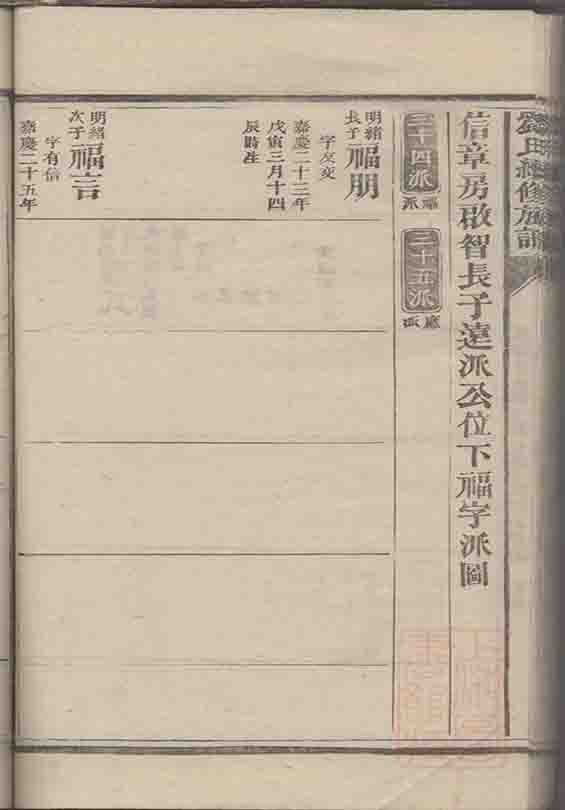 劉氏續修族譜
信章房啟智長子遠派公位下福字派圖
三十四派
福派
三十五派
應派
明緒長子
福朋
字友交
嘉慶二十三年
戊寅三月十四
辰時生
明緒次子
福言
字有信
嘉慶二十五年